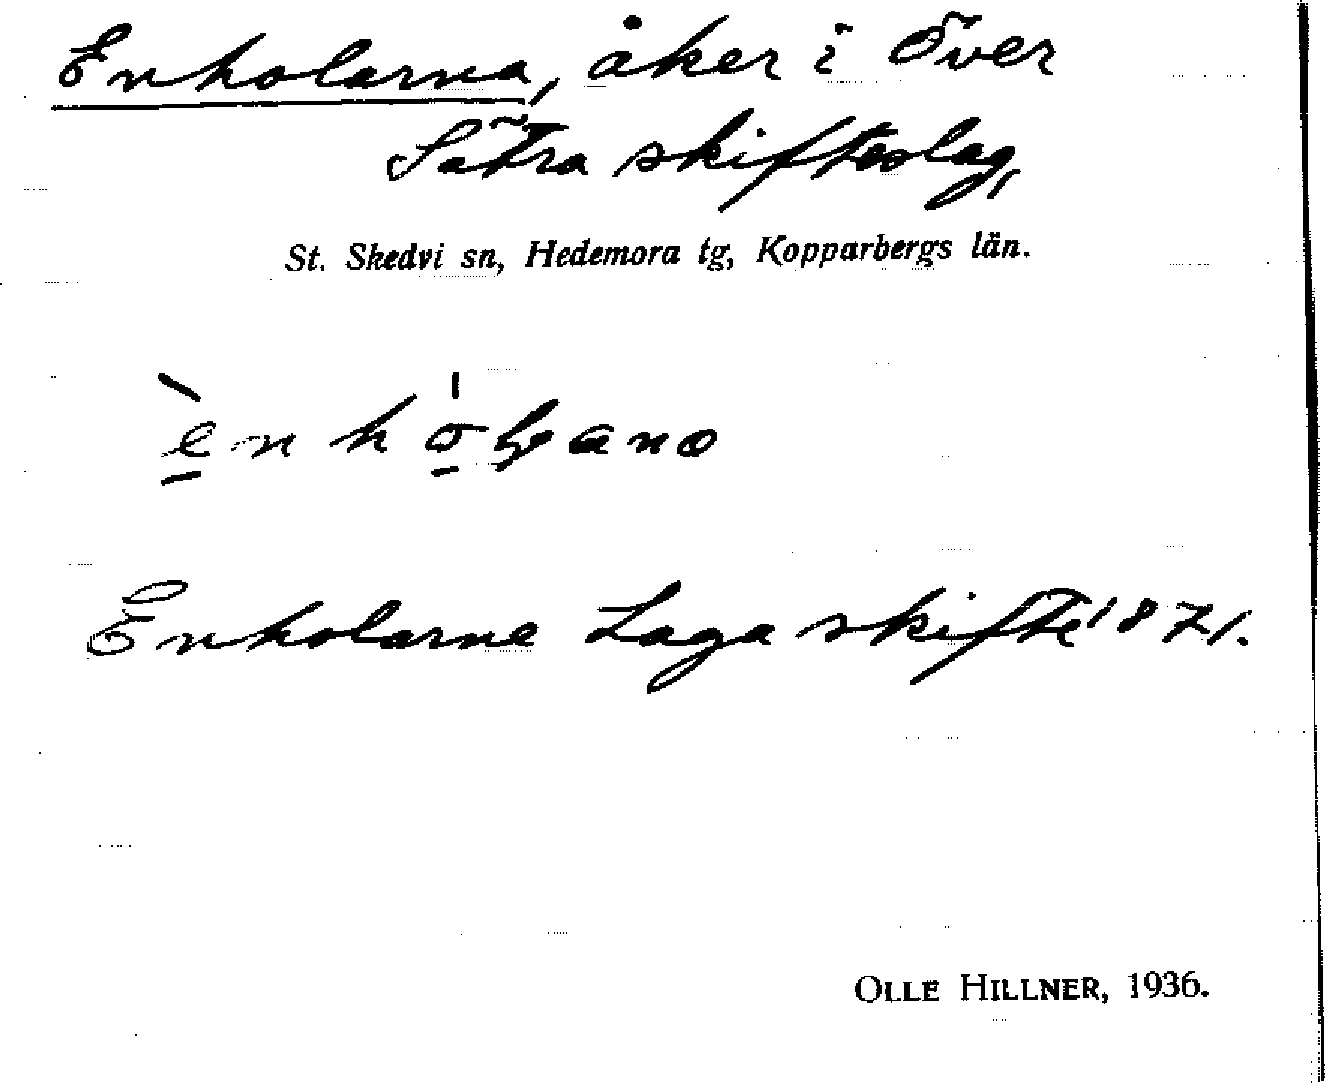 Enholarna, åker i Över
Sätra skifteslag,
St. Skedvi sn, Hedemora tg, Kopparbergs län.
Enholarne Laga skifte 1871.
OLLE HILLNER, 1936.